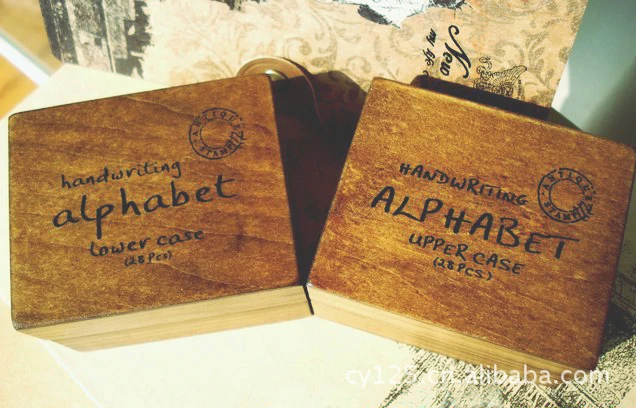 handwriting
alphabet
lower case
(28 Pcs)
ANTIQUE STAMPS
HANDWRITING
ALPHABET
UPPER CASE
(28 PCS.)
ANTIQUE STAMPS
New
my life
cy125.cn.alibaba.com